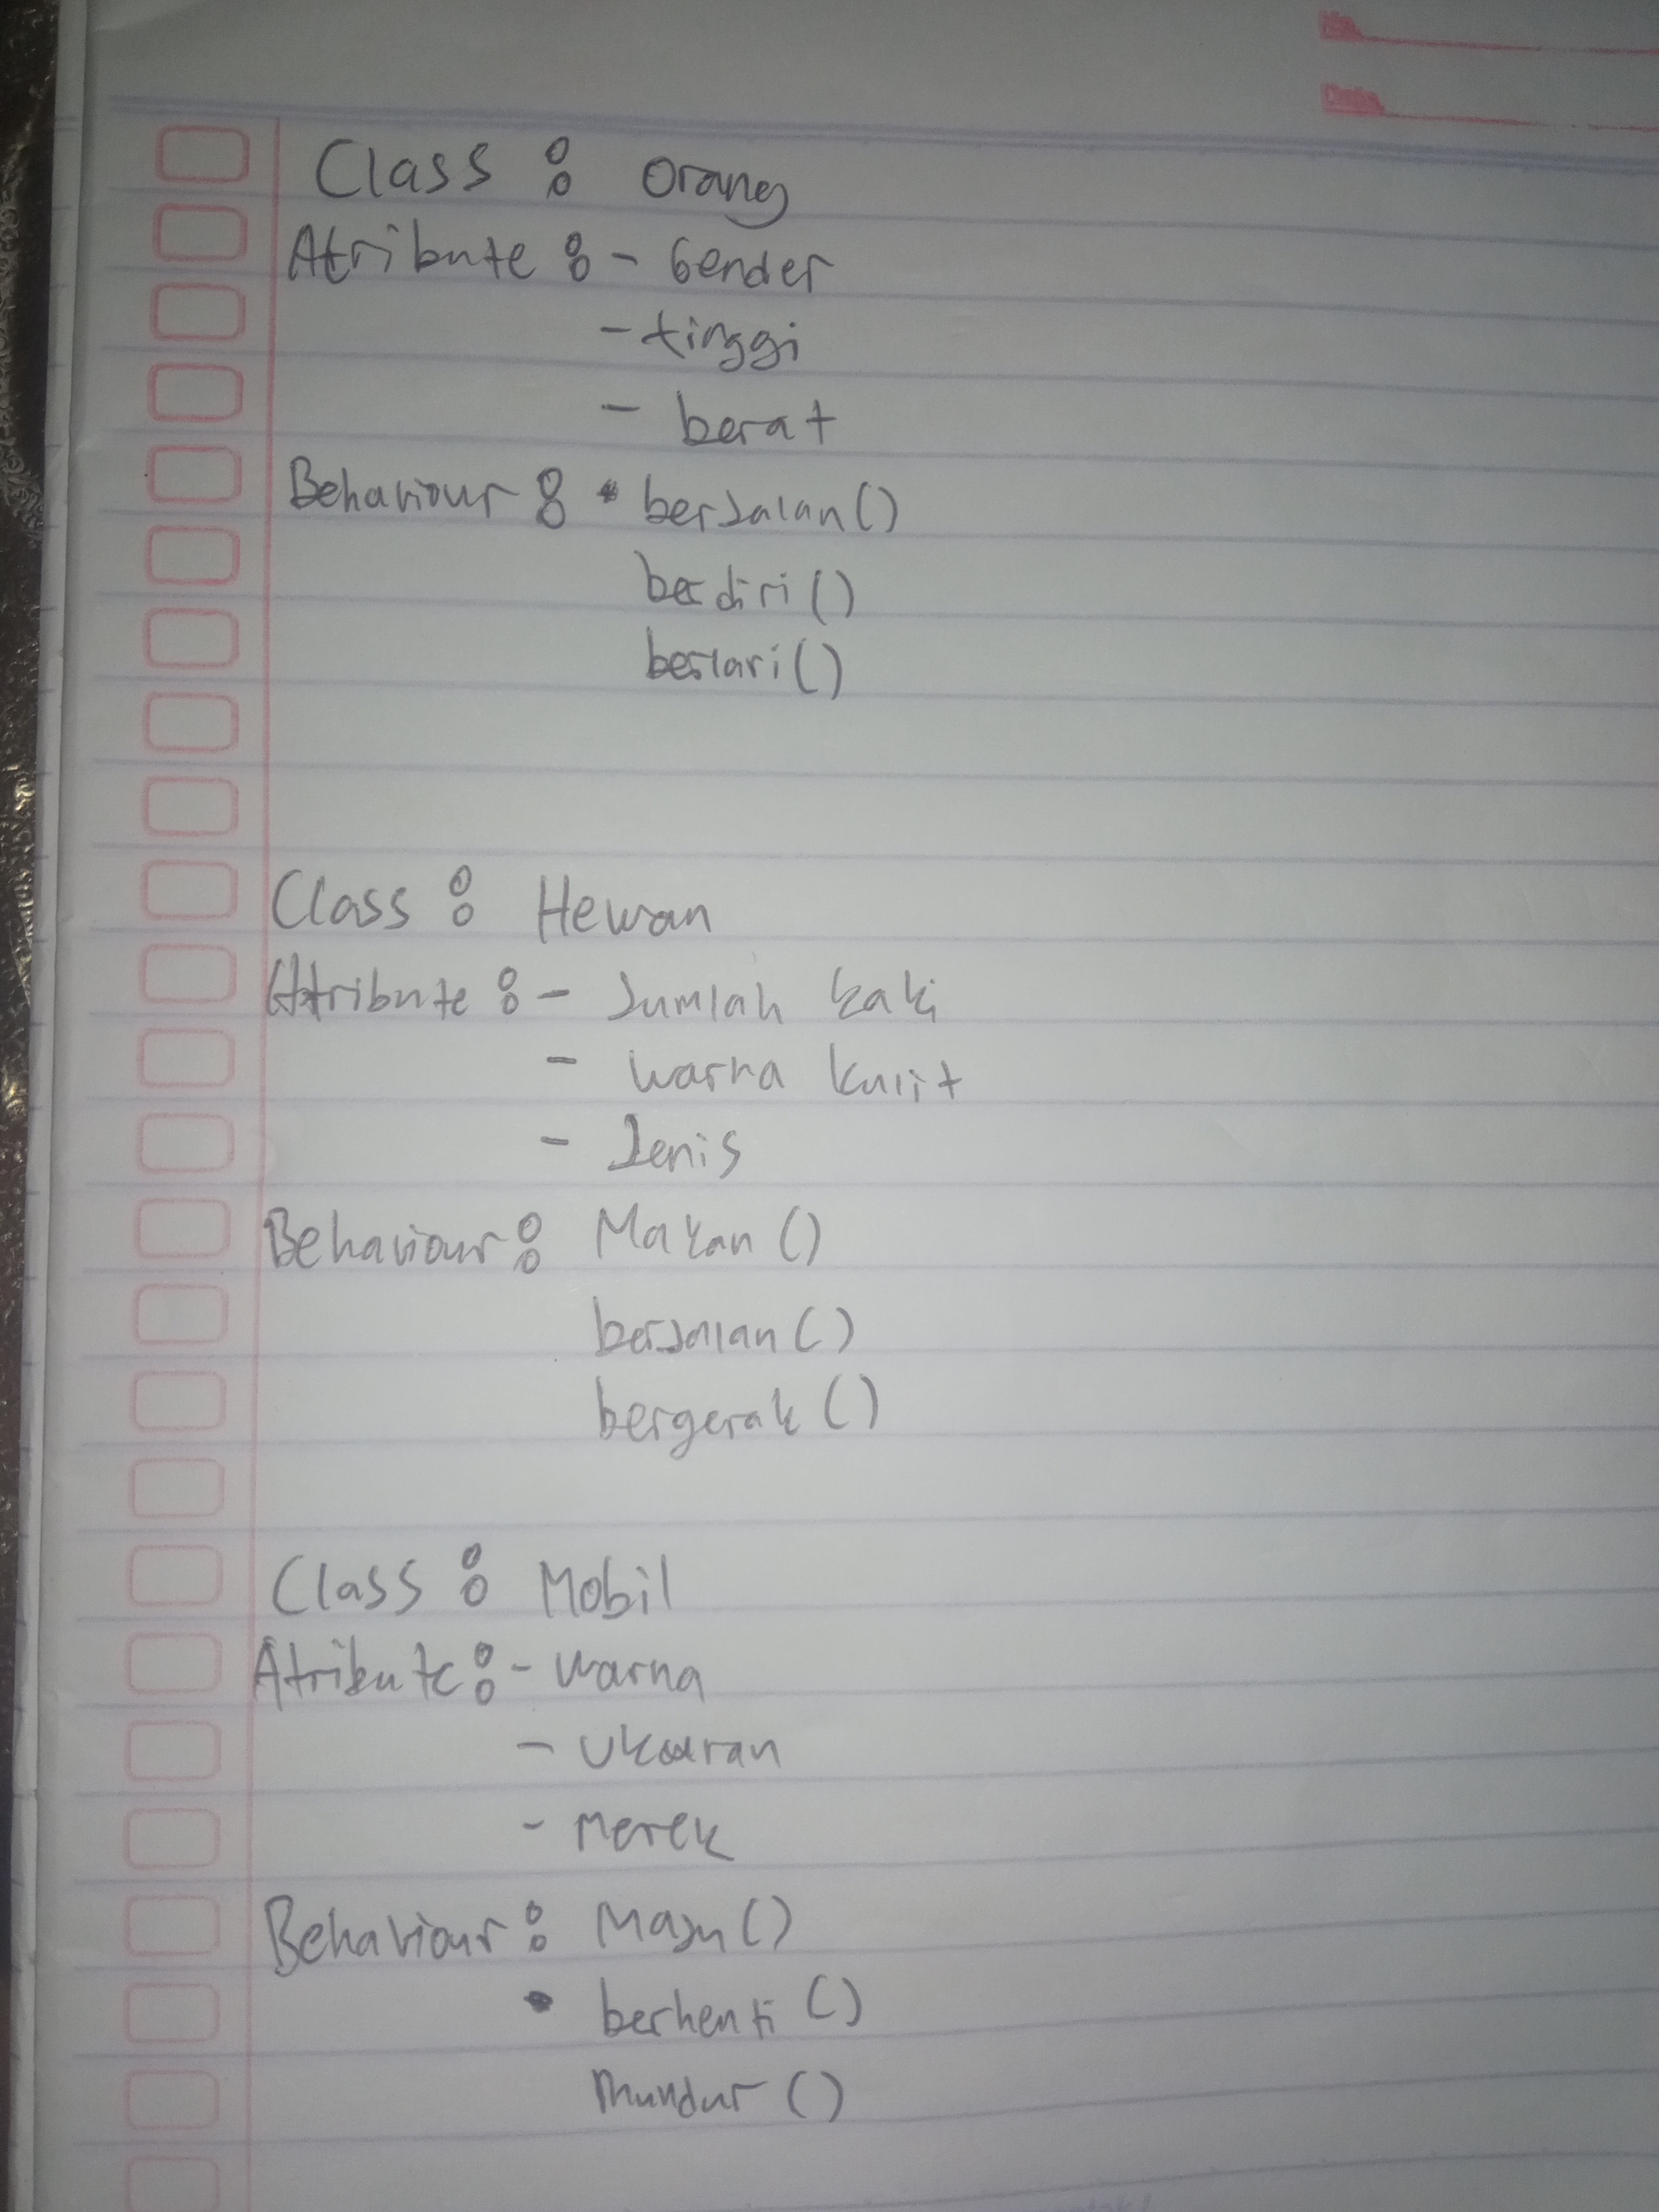 No.
Date
Class : Orang
Atribute : - Gender
- tinggi
- berat
Behaviour : • berjalan()
berdiri()
berlari()
Class : Hewan
Atribute : - Jumlah kaki
- warna kulit
- Jenis
Behaviour : Makan()
berjalan()
bergerak()
Class : Mobil
Atribute : - warna
- Ukuran
- Merek
Behaviour : Maju()
• berhenti()
Mundur()